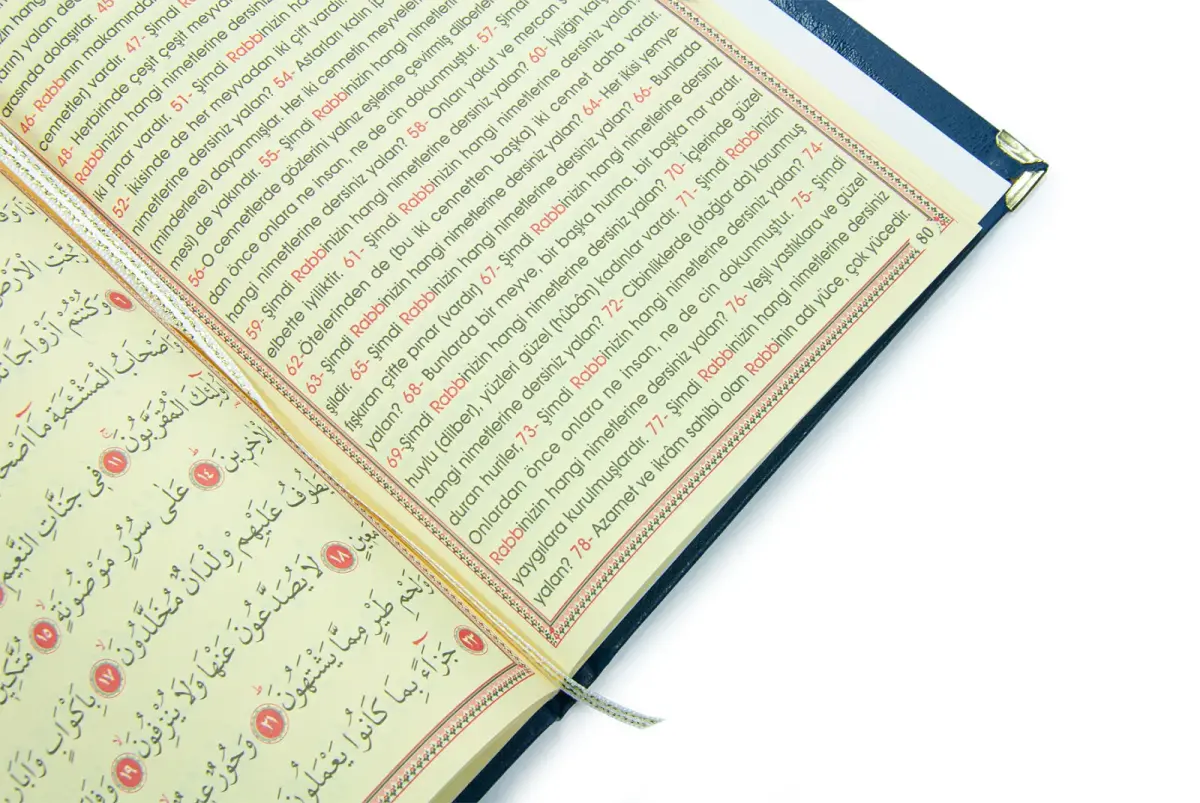 arasında dolaşırlar. 45
46- Rabbının makamında
cennetler) vardır. 47- Şimdi Rabbinizin hangi
48- Herbirinde çeşit çeşit meyva
Rabbinizin hangi nimetlerine dersiniz
iki pınar vardır. 51- Şimdi Rabbinizin hangi nimetlerine
52- İkisinde de her meyvadan iki çift vardır.
nimetlerine dersiniz yalan? 54- Astarları kalın
(minderlere) dayanmışlar. Her iki cennetin
mesi) de yakındır. 55- Şimdi Rabbinizin hangi nimetlerine
56-O cennetlerde gözlerini yalnız eşlerine çevirmiş
dan önce onlara ne insan, ne de cin dokunmuştur. 57- Şimdi
hangi nimetlerine dersiniz yalan? 58- Onları yakut ve mercan
59- Şimdi Rabbinizin hangi nimetlerine dersiniz yalan? 60- İyiliğin
elbette iyiliktir. 61- Şimdi Rabbinizin hangi nimetlerine dersiniz yalan?
62-Ötelerinden de (bu iki cennetten başka) iki cennet daha vardır.
63- Şimdi Rabbinizin hangi nimetlerine dersiniz yalan? 64- Her ikisi yemye-
şildir. 65- Şimdi Rabbinizin hangi nimetlerine dersiniz yalan? 66- Bunlarda
fışkıran çifte pınar (vardır) 67- Şimdi Rabbinizin hangi nimetlerine dersiniz
yalan? 68- Bunlarda bir meyve, bir başka hurma, bir başka nar vardır.
69-Şimdi Rabbinizin hangi nimetlerine dersiniz yalan? 70- İçlerinde güzel
huylu (dilber), yüzleri güzel (hûbân) kadınlar vardır. 71- Şimdi Rabbinizin
hangi nimetlerine dersiniz yalan? 72- Cibinliklerde (otağlar da) korunmuş
duran huriler, 73- Şimdi Rabbinizin hangi nimetlerine dersiniz yalan? 74-
Onlardan önce onlara ne insan, ne de cin dokunmuştur. 75- Şimdi
Rabbinizin hangi nimetlerine dersiniz yalan? 76- Yeşil yastıklara ve güzel
yaygılara kurulmuşlardır. 77- Şimdi Rabbinizin hangi nimetlerine dersiniz
yalan? 78- Azamet ve ikrâm sahibi olan Rabbinin adı yüce, çok yücedir.
80
وَكُنْتُمْ اَزْوَاجًا
اَصْحَابُ الْمَشْـَٔمَةِ مَٓا
اُو۬لٰٓئِكَ الْمُقَرَّبُونَ ١١ فٖى جَنَّاتِ النَّعٖيمِ
الْاٰخِرٖينَ ١٤ عَلٰى سُرُرٍ مَوْضُونَةٍ ١٥ مُتَّكِـٖٔينَ
يَطُوفُ عَلَيْهِمْ وِلْدَانٌ مُخَلَّدُونَ ١٧ بِاَكْوَابٍ
١٨ لَا يُصَدَّعُونَ عَنْهَا وَلَا يُنْزِفُونَ ١٩
طَيْرٍ مِمَّا يَشْتَهُونَ ٢١ وَحُورٌ
٢٣ جَزَٓاءً بِمَا كَانُوا يَعْمَلُونَ